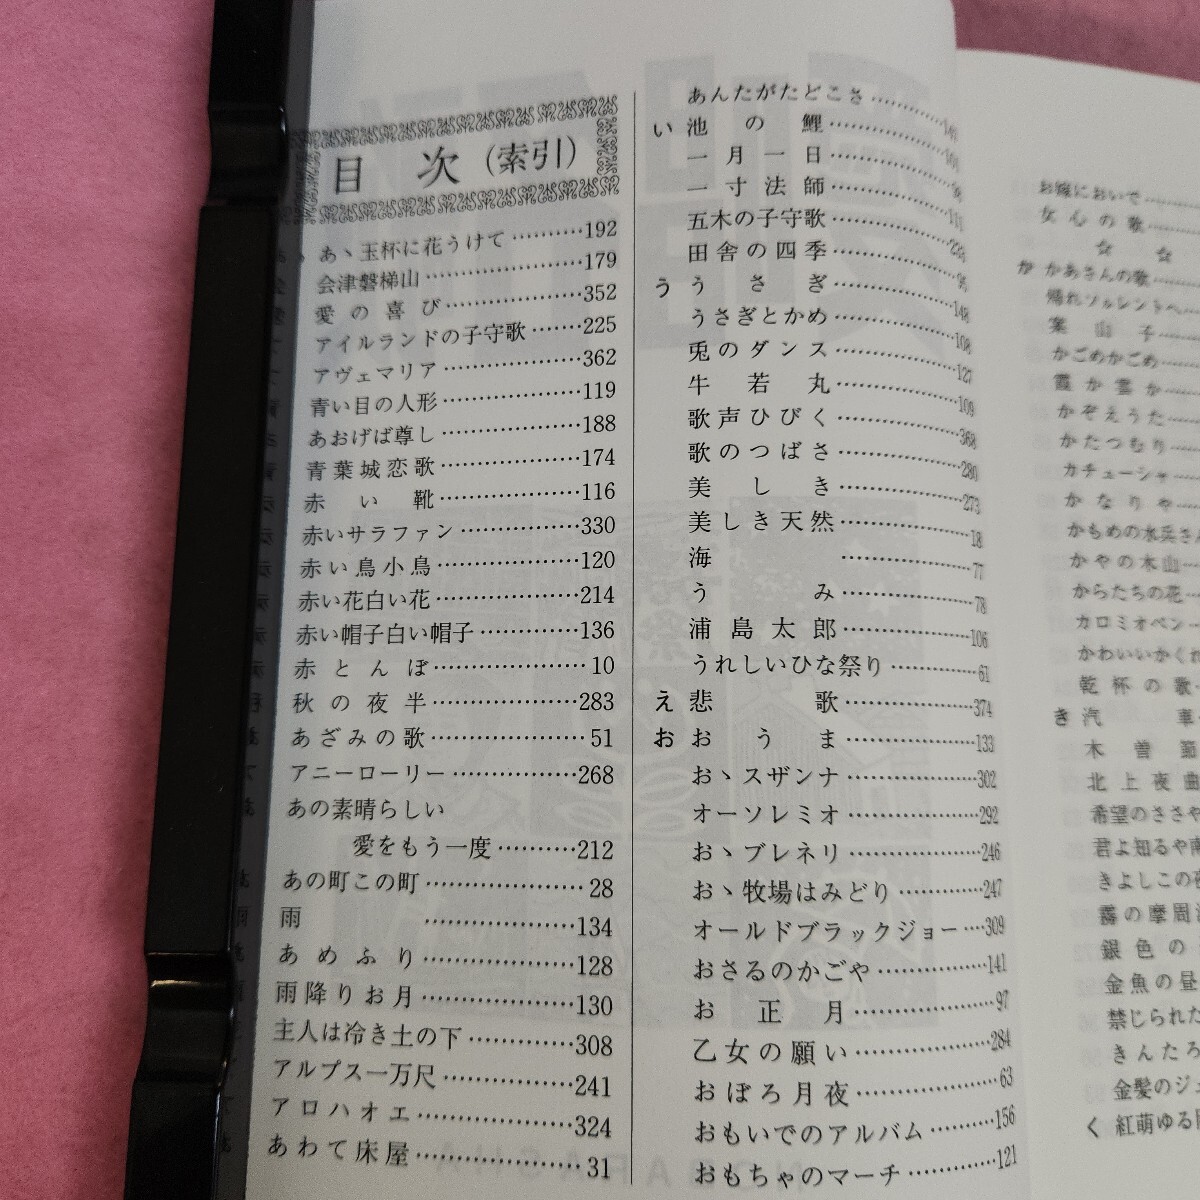 目次（索引）
あゝ玉杯に花うけて…………192
会津磐梯山…………179
愛の喜び…………352
アイルランドの子守歌………225
アヴェマリア…………362
青い目の人形…………119
あおげば尊し…………188
青葉城恋歌…………174
赤い靴…………116
赤いサラファン…………330
赤い鳥小鳥…………120
赤い花白い花…………214
赤い帽子白い帽子…………136
赤とんぼ…………10
秋の夜半…………283
あざみの歌…………51
アニーローリー…………268
あの素晴らしい
愛をもう一度…………212
あの町この町…………28
雨…………134
あめふり…………128
雨降りお月…………130
主人は冷き土の下…………308
アルプス一万尺…………241
アロハオエ…………324
あわて床屋…………31
あんたがたどこさ…………
い 池の鯉…………
一月一日…………
一寸法師…………111
五木の子守歌…………
田舎の四季…………
う うさぎ…………148
うさぎとかめ…………108
兎のダンス…………127
牛若丸…………109
歌声ひびく…………368
歌のつばさ…………280
美しき…………273
美しき天然…………18
海…………77
うみ…………78
浦島太郎…………106
うれしいひな祭り…………61
え 悲歌…………374
お おうま…………133
おゝスザンナ…………302
オーソレミオ…………292
おゝブレネリ…………246
おゝ牧場はみどり…………247
オールドブラックジョー…309
おさるのかごや…………141
お正月…………97
乙女の願い…………284
おぼろ月夜…………63
おもいでのアルバム…………156
おもちゃのマーチ…………121
お嫁においで…………
女心の歌…………
☆ ☆
か かあさんの歌…………
帰れソレントへ…………
案山子…………
かごめかごめ…………
霞か雲か…………
かぞえうた…………
かたつむり…………
カチューシャ…………
かなりや…………
かもめの水兵さん
かやの木山…
からたちの花…
カロミオベン…
かわいいかくれ
乾杯の歌…
き 汽車…
木曽節
北上夜曲
希望のささや
君よ知るや南
きよしこの夜
霧の摩周湖
銀色の
金魚の昼
禁じられた
きんたろ
金髪のジェ
く 紅萌ゆる